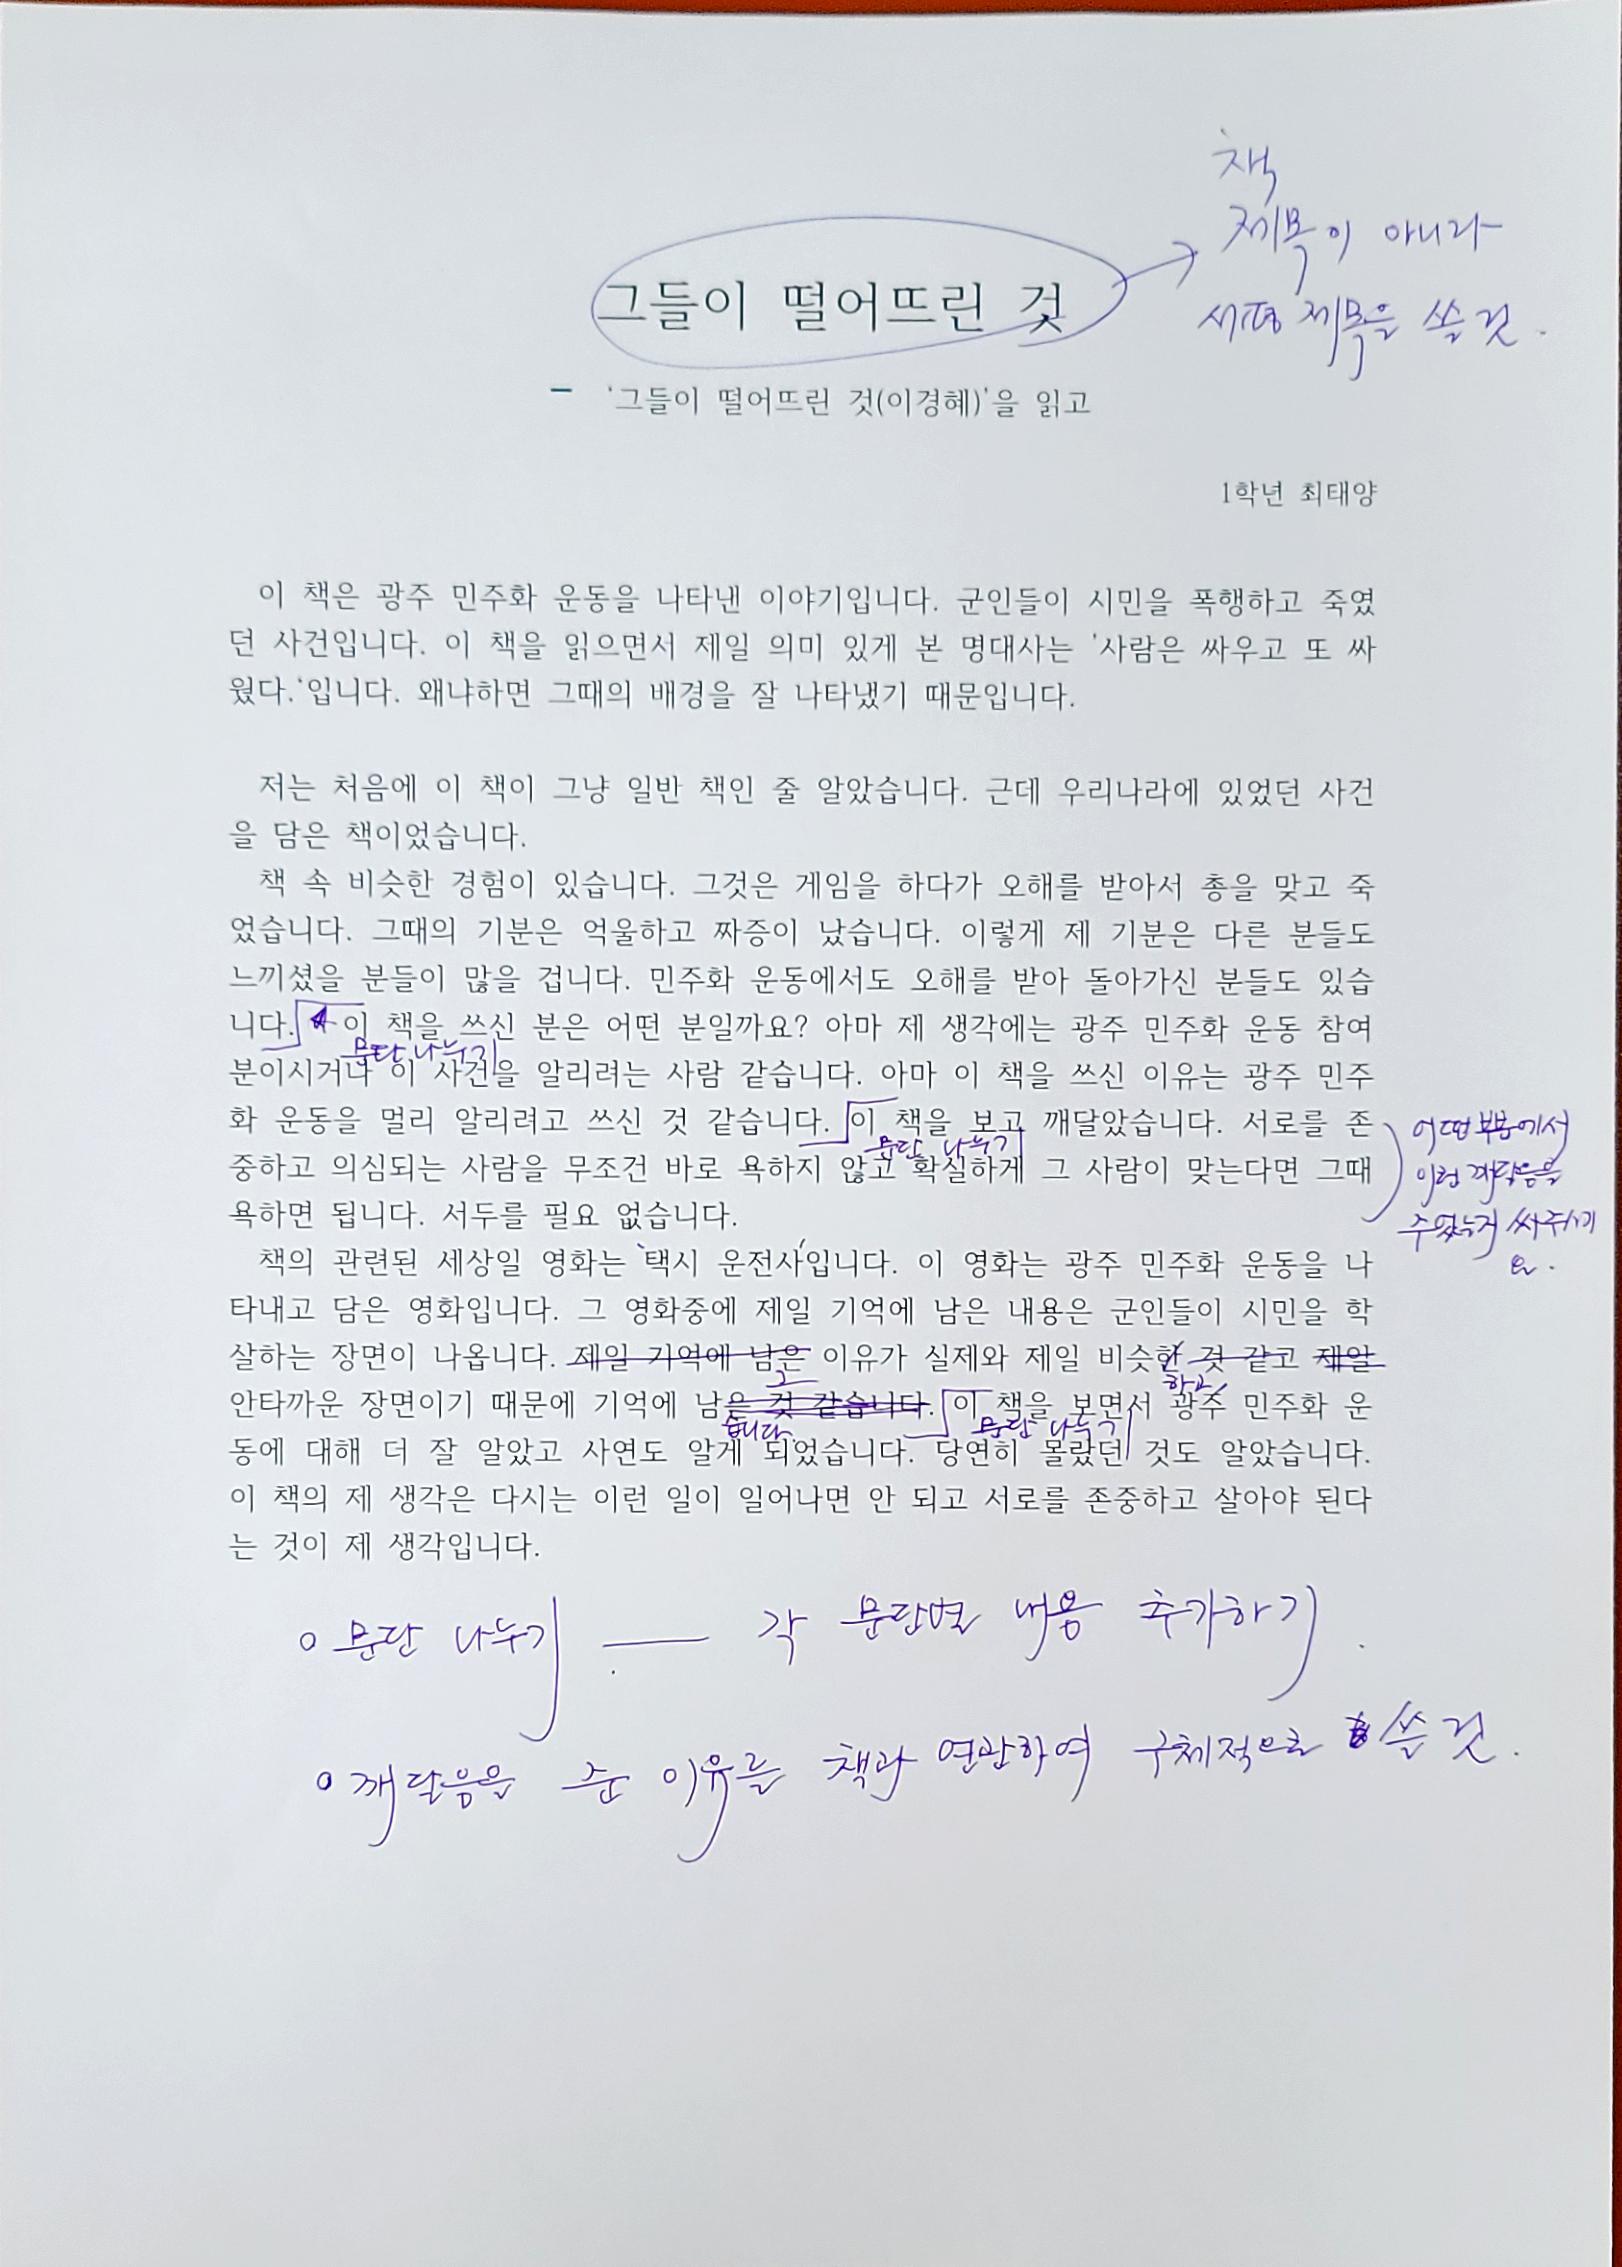 책
제목이 아니라
서평 제목을 쓸 것.
그들이 떨어뜨린 것
- '그들이 떨어뜨린 것(이경혜)'을 읽고
1학년 최태양
이 책은 광주 민주화 운동을 나타낸 이야기입니다. 군인들이 시민을 폭행하고 죽였
던 사건입니다. 이 책을 읽으면서 제일 의미 있게 본 명대사는 '사람은 싸우고 또 싸
웠다.'입니다. 왜냐하면 그때의 배경을 잘 나타냈기 때문입니다.
저는 처음에 이 책이 그냥 일반 책인 줄 알았습니다. 근데 우리나라에 있었던 사건
을 담은 책이었습니다.
책 속 비슷한 경험이 있습니다. 그것은 게임을 하다가 오해를 받아서 총을 맞고 죽
었습니다. 그때의 기분은 억울하고 짜증이 났습니다. 이렇게 제 기분은 다른 분들도
느끼셨을 분들이 많을 겁니다. 민주화 운동에서도 오해를 받아 돌아가신 분들도 있습
니다. 이 책을 쓰신 분은 어떤 분일까요? 아마 제 생각에는 광주 민주화 운동 참여
문단 나누기
분이시거나 이 사건을 알리려는 사람 같습니다. 아마 이 책을 쓰신 이유는 광주 민주
화 운동을 멀리 알리려고 쓰신 것 같습니다. 이 책을 보고 깨달았습니다. 서로를 존
문단 나누기
중하고 의심되는 사람을 무조건 바로 욕하지 않고 확실하게 그 사람이 맞는다면 그때
욕하면 됩니다. 서두를 필요 없습니다.
어떤 부분에서
이런 깨달음을
주었는지 써주시기
책의 관련된 세상일 영화는 '택시 운전사'입니다. 이 영화는 광주 민주화 운동을 나
타내고 담은 영화입니다. 그 영화중에 제일 기억에 남은 내용은 군인들이 시민을 학
살하는 장면이 나옵니다. 제일 기억에 남은 이유가 실제와 제일 비슷한 것 같고 제일
그
하고
안타까운 장면이기 때문에 기억에 남은 것 같습니다. 이 책을 보면서 광주 민주화 운
습니다
문단 나누기
동에 대해 더 잘 알았고 사연도 알게 되었습니다. 당연히 몰랐던 것도 알았습니다.
이 책의 제 생각은 다시는 이런 일이 일어나면 안 되고 서로를 존중하고 살아야 된다
는 것이 제 생각입니다.
o 문단 나누기 — 각 문단별 내용 추가하기.
o 깨달음을 준 이유를 책과 연관하여 구체적으로 쓸 것.